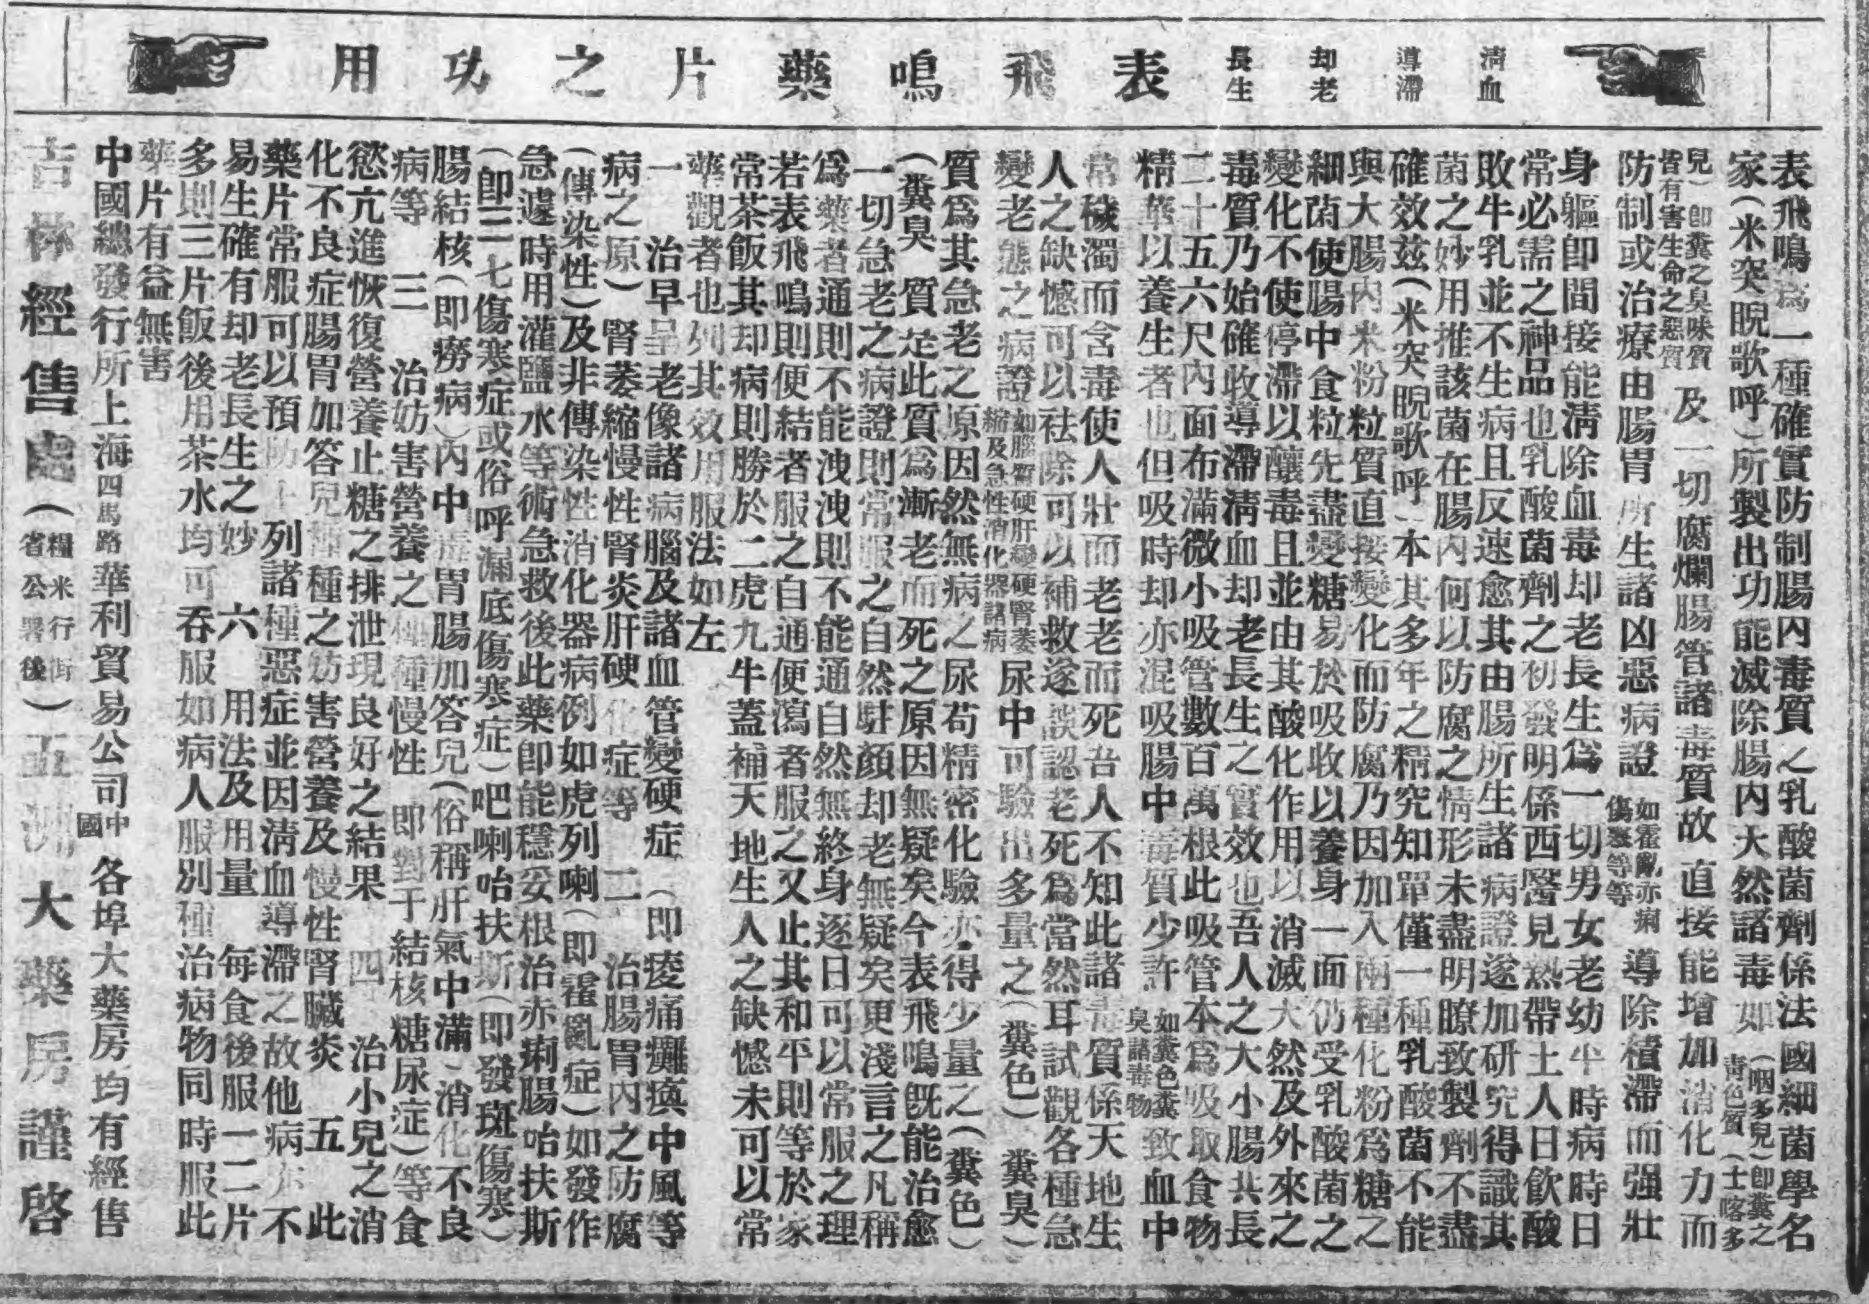 清血 導滯 却老 長生 表飛鳴藥片之功用
表飛鳴爲一種確實防制腸內毒質之乳酸菌劑係法國細菌學名
家(米突睨歌呼)所製出功能滅除腸內天然諸毒如(啯多兒)卽糞之青色質(士喀多
兒)卽糞之臭味質皆有害生命之惡質及一切腐爛腸管諸毒質故直接能增加消化力而
防制或治療由腸胃所生諸凶惡病證如霍亂赤痢傷寒等等導除積滯而强壯
身軀卽間接能淸除血毒却老長生爲一切男女老幼平時病時日
常必需之神品也乳酸菌劑之初發明係西醫見熱帶土人日飮酸
敗牛乳並不生病且反速愈其由腸所生諸病證遂加研究得識其
菌之妙用推該菌在腸內何以防腐之情形未盡明瞭致製劑不盡
確效茲(米突睨歌呼)本其多年之精究知單僅一種乳酸菌不能
與大腸內米粉粒質直接變化而防腐乃因加入兩種化粉爲糖之
細菌使腸中食粒先盡變糖易於吸收以養身一面仍受乳酸菌之
變化不使停滯以釀毒且並由其酸化作用以消滅天然及外來之
毒質乃始確收導滯淸血却老長生之實效也吾人之大小腸共長
二十五六尺內面布滿微小吸管數百萬根此吸管本爲吸取食物
精華以養生者也但吸時却亦混吸腸中毒質少許如糞色糞臭諸毒物致血中
常穢濁而含毒使人壯而老老而死吾人不知此諸毒質係天地生
人之缺憾可以祛除可以補救遂誤認老死爲當然耳試觀各種急
變老態之病證如腦質硬肝變硬腎萎縮及急性消化器諸病尿中可驗出多量之(糞色)(糞臭)
質爲其急老之原因然無病之尿苟精密化驗亦得少量之(糞色)
(糞臭)質是此質爲漸老而死之原因無疑矣今表飛鳴旣能治愈
一切急老之病證則常服之自然駐顏却老無疑矣更淺言之凡稱
爲藥者通則不能洩洩則不能通自然無終身逐日可以常服之理
若表飛鳴則便結者服之自通便瀉者服之又止其和平則等於家
常茶飯其却病則勝於二虎九牛蓋補天地生人之缺憾未可以常
藥觀者也列其效用服法如左
一 治早呈老像諸病腦及諸血管變硬症(卽痠痛癱瘓中風等
病之原)腎萎縮慢性腎炎肝硬化症等 二 治腸胃內之防腐
(傳染性)及非傳染性消化器病例如虎列喇(卽霍亂症)如發作
急遽時用灌鹽水等術急救後此藥卽能穩妥根治赤痢腸哈扶斯
(卽三七傷寒症或俗呼漏底傷寒症)吧喇哈扶斯(卽發斑傷寒)
腸結核(卽癆病)內中毒胃腸加答兒(俗稱肝氣中滿)消化不良
病等 三 治妨害營養之種種慢性卽對于結核糖尿症)等食
慾亢進恢復營養止糖之排泄現良好之結果 四 治小兒之消
化不良症腸胃加答兒種種之妨害營養及慢性腎臟炎 五 此
藥片常服可以預防上列諸種惡症並因淸血導滯之故他病亦不
易生確有却老長生之妙 六 用法及用量 每食後服一二片
多則三片飯後用茶水均可吞服如病人服別種治病物同時服此
藥片有益無害
中國總發行所上海四馬路華利貿易公司中國各埠大藥房均有經售
吉林經售處(糧米行街省公署後)五洲大藥房謹啓